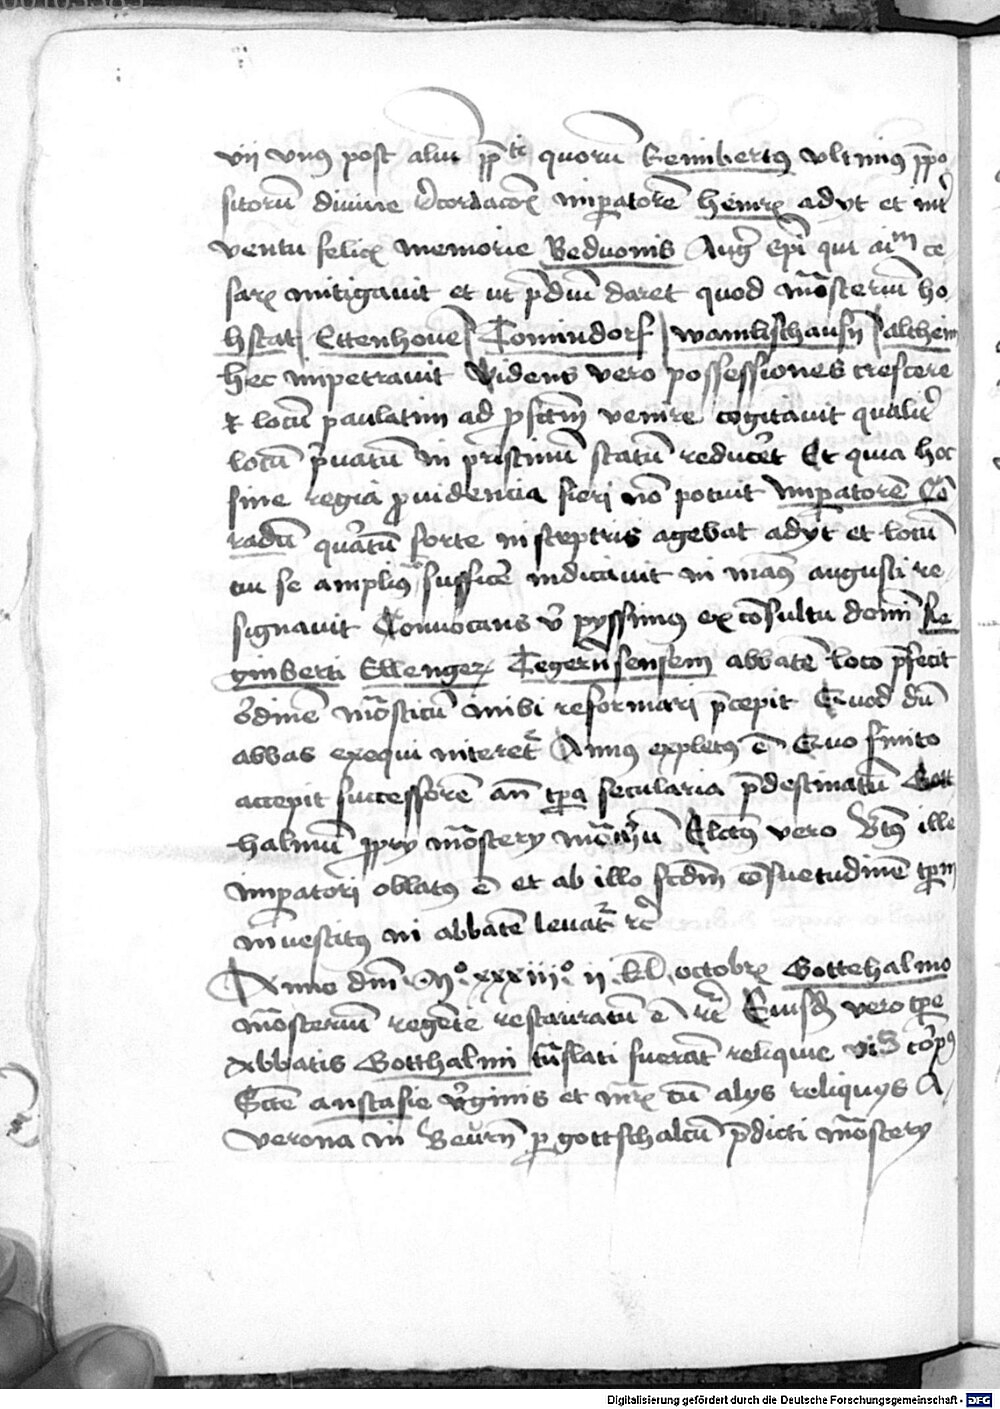 vii vnus post aliu pptr quoru Reinbertus vltimus ppo
sitoru diuine recordacois imperatore heinr adyt et int
uentu felic memorie Beduonis Aug epi qui aim ce
sar mitigauit et ut pdiu daret quod moasteriu ho
hstat / Ettenhouen / Tomindorf / wamlischausn / altheim
hec impetrauit Widens vero possessiones crescere
et locu paulatim ad pfctm venire cogitauit qualit
locu priuatu in pristinu statu reducet Et quia hoc
sine regia puidencia fieri no potuit Imperatore Co
radu quatu forte in sceptris agebat adyt et locu
cu se amplius suffice indicauit in man augusti re
signauit Conuocans v pyssimus ex consultu domi Re
ginberti Ellenger Tegernsensem abbate loco pfecit
Ordine moasticu inibi reformari pcepit Quod du
abbas exequi niteret Annus expletus e Quo finito
accepit successore an tpa secularia pdestinatu Gott
halmu ppry moastery monachu Electus vero Btus ille
imperatori oblatus e et ab illo scdm consuetudine tpm
inuestitus in abbate leuatr rc
Anno dni Mo xxxiiio ii kl octobr Gottehalmo
moasteriu regente restauratu e rc Eiusd vero tpe
Abbatis Gotthalmi tnslati fuerat reliquie vid corpus
Scte anstasie virginis et mr cu alys reliquys A
verona in Beurn p gottschalcu pdicti moastery
Digitalisierung gefördert durch die Deutsche Forschungsgemeinschaft - DFG